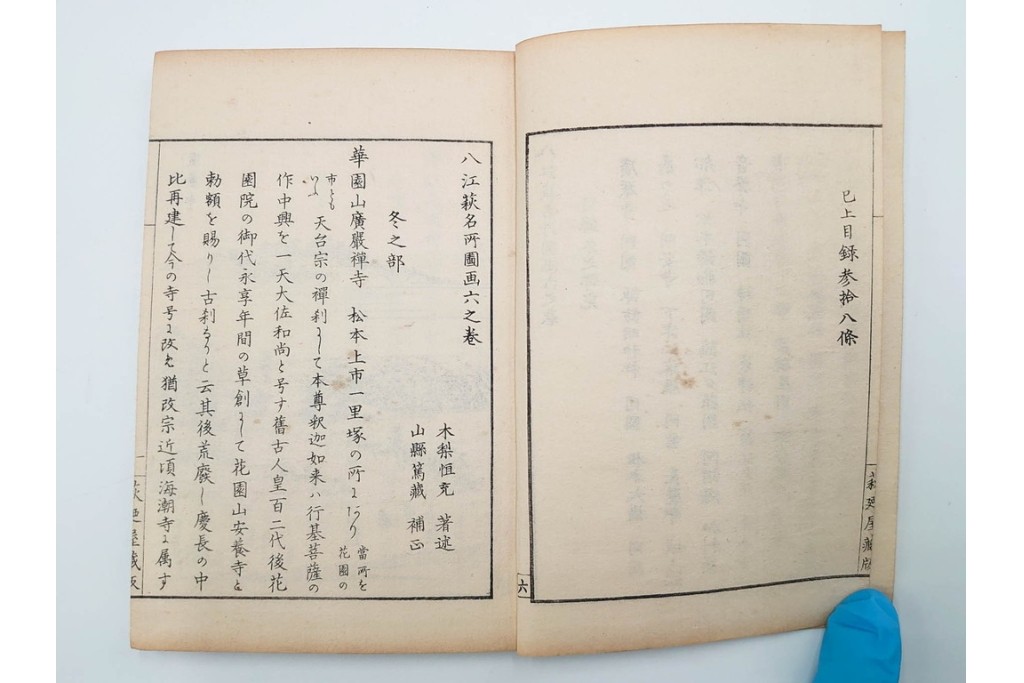 已上目録参拾八條
萩廼屋蔵版
六
八江萩名所圖画六之巻
木梨恒充 著述
山縣篤蔵 補正
冬之部
華園山廣巖禪寺 松本上市一里塚の所にあり 當所を花園の
市ともいふ 天台宗の禪刹にして本尊釈迦如来ハ行基菩薩の
作中興を一天大佐和尚と号す舊古人皇百二代後花
園院の御代永享年間の草創にして花園山安養寺と
勅額を賜りし古刹なりと云其後荒廢し慶長の中
比再建して今の寺号に改む猶改宗近頃海潮寺に属す
萩廼屋蔵版